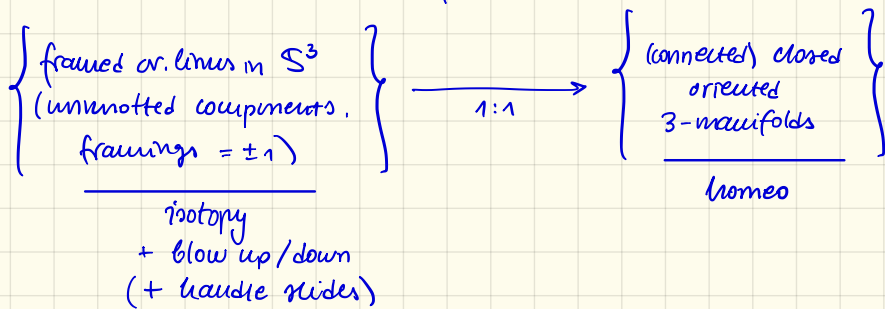 framed or. links in S³
(unknotted components,
framings = ±1)
isotopy
+ blow up/down
(+ handle slides)
1:1
(connected) closed
oriented
3-manifolds
homeo